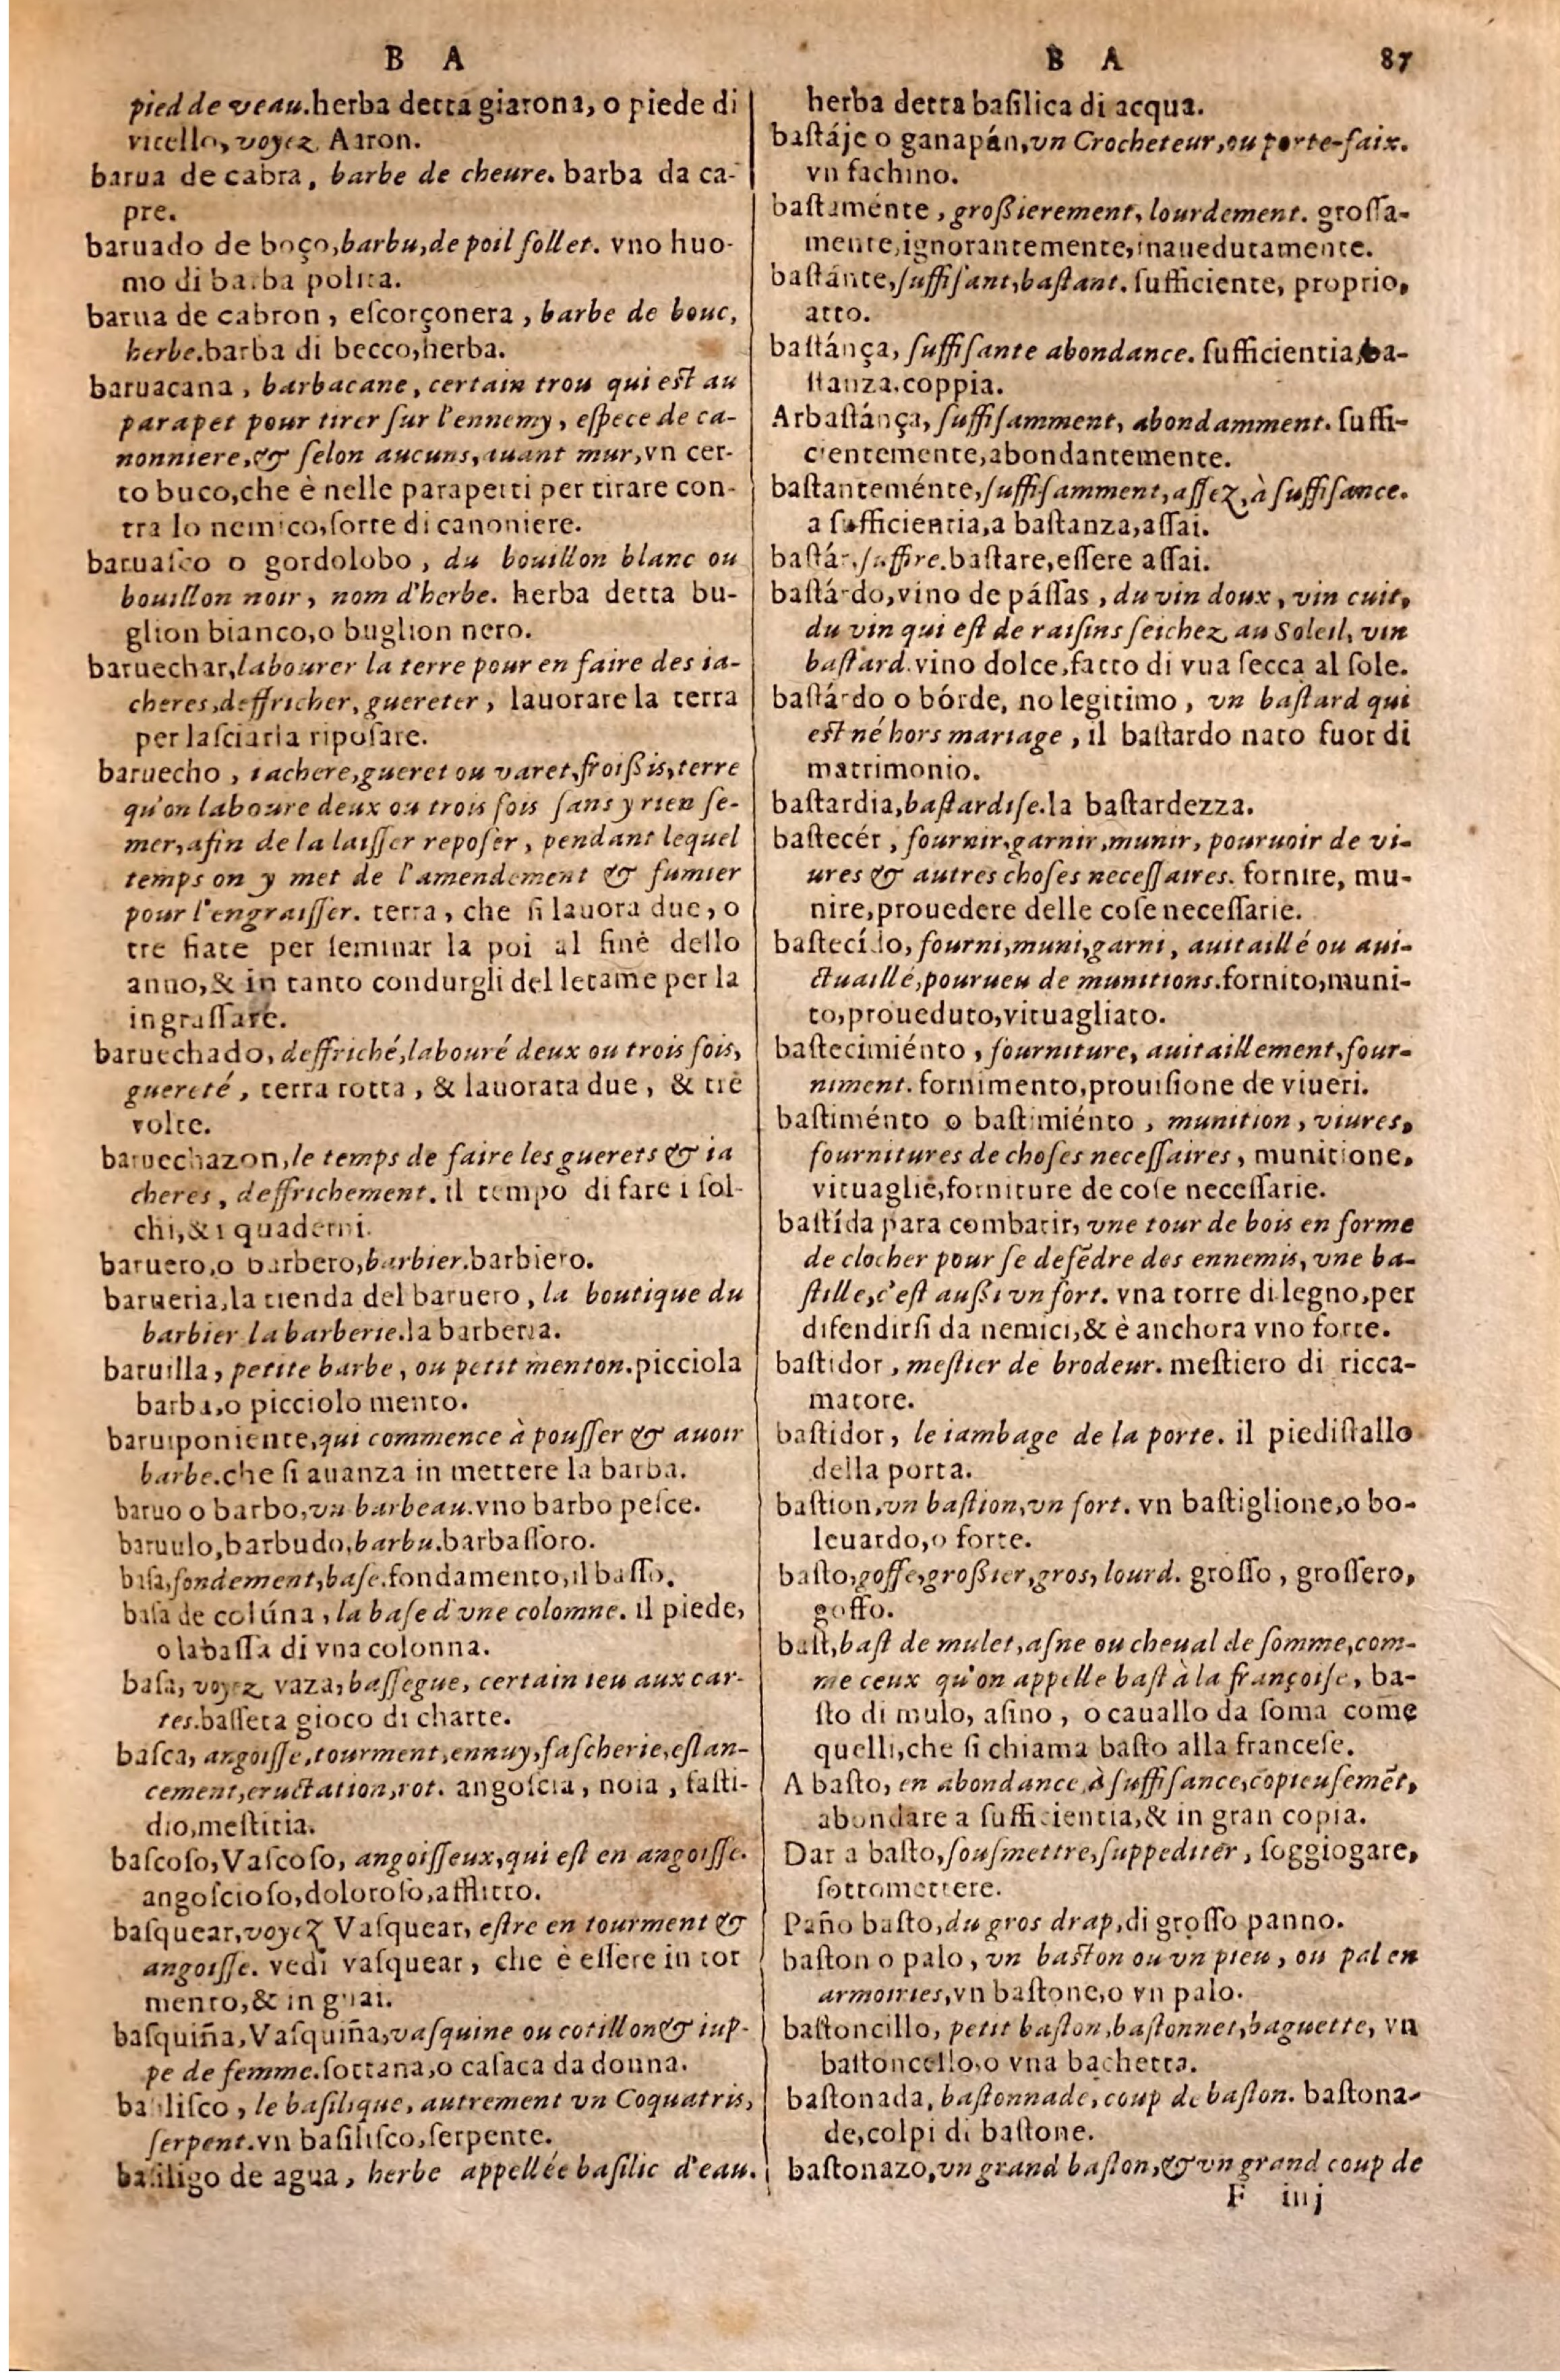 B A
pied de veau.herba detta giarona, o piede di
vitello, voyez Aaron.
barua de cabra, barbe de cheure. barba da ca-
pre.
baruado de boço,barbu,de poil follet. vno huo-
mo di barba polita.
barua de cabron, eſcorçonera, barbe de bouc,
herbe.barba di becco,herba.
baruacana, barbacane, certain trou qui eſt au
parapet pour tirer ſur l'ennemy, eſpece de ca-
nonniere,& ſelon aucuns,auant mur,vn cer-
to buco,che è nelle parapetti per tirare con-
tra lo nemico,ſorte di canoniere.
baruaſco o gordolobo, du bouillon blanc ou
bouillon noir, nom d'herbe. herba detta bu-
glion bianco,o buglion nero.
baruechar,labourer la terre pour en faire des ia-
cheres,deffricher,guereter, lauorare la terra
per laſciarla ripoſare.
baruecho, iachere,gueret ou varet,froißis,terre
qu'on laboure deux ou trois fois ſans y rien ſe-
mer,afin de la laiſſer repoſer, pendant lequel
temps on y met de l'amendement & fumier
pour l'engraiſſer. terra, che ſi lauora due, o
tre fiate per ſeminar la poi al fine dello
anno,& in tanto condurgli del letame per la
ingraſſare.
baruechado, deffriché,labouré deux ou trois fois,
guereté, terra rotta, & lauorata due, & tre
volte.
baruechazon,le temps de faire les guerets & ia
cheres, deffrichement. il tempo di fare i ſol-
chi,& i quaderni.
baruero,o barbero,barbier.barbiero.
barueria,la tienda del baruero, la boutique du
barbier la barberie.la barberia.
baruilla, petite barbe, ou petit menton.picciola
barba,o picciolo mento.
baruiponiente,qui commence à pouſſer & auoir
barbe.che ſi auanza in mettere la barba.
baruo o barbo,vn barbeau.vno barbo peſce.
baruulo,barbudo,barbu.barbaſſoro.
baſa,fondement,baſe.fondamento,il baſſo.
baſa de colúna, la baſe d'vne colomne. il piede,
o la baſſa di vna colonna.
baſa, voyez vaza,baſſegue, certain ieu aux car-
tes.baſſeta gioco di charte.
baſca, angoiſſe,tourment,ennuy,faſcherie,eſlan-
cement,eructation,rot. angoſcia, noia, faſti-
dio,meſtitia.
baſcoſo,Vaſcoſo, angoiſſeux,qui eſt en angoiſſe.
angoſcioſo,doloroſo,afflitto.
baſquear,voyez Vaſquear, eſtre en tourment &
angoiſſe. vedi vaſquear, che è eſſere in tor
mento,& in guai.
baſquiña,Vaſquiña,vaſquine ou cotillon & iup-
pe de femme.ſottana,o caſaca da donna.
baſiliſco, le baſilique, autrement vn Coquatris,
ſerpent.vn baſiliſco,ſerpente.
baſiligo de agua, herbe appellée baſilic d'eau.
B A 87
herba detta baſilica di acqua.
baſtáje o ganapán,vn Crocheteur,ou porte-faix.
vn fachino.
baſtaménte, großierement, lourdement. groſſa-
mente,ignorantemente,inauedutamente.
baſtánte,ſuffiſant,baſtant. ſufficiente, proprio,
atto.
baſtánça, ſuffiſante abondance. ſufficientia,ba-
ſtanza.coppia.
Arbaſtánça, ſuffiſamment, abondamment. ſuffi-
cientemente,abondantemente.
baſtanteménte,ſuffiſamment,aſſez,à ſuffiſance.
a ſufficientia,a baſtanza,aſſai.
baſtár,ſuffire.baſtare,eſſere aſſai.
baſtárdo,vino de páſſas, du vin doux, vin cuit,
du vin qui eſt de raiſins ſeichez au Soleil, vin
baſtard.vino dolce,fatto di vua ſecca al ſole.
baſtárdo o bórde, no legitimo, vn baſtard qui
eſt né hors mariage, il baſtardo nato fuor di
matrimonio.
baſtardia,baſtardiſe.la baſtardezza.
baſtecér, fournir,garnir,munir, pouruoir de vi-
ures & autres choſes neceſſaires. fornire, mu-
nire,prouedere delle coſe neceſſarie.
baſtecído, fourni,muni,garni, auitaillé ou aui-
ctuaillé,pourueu de munitions.fornito,muni-
to,proueduto,vituagliato.
baſtecimiénto, fourniture, auitaillement,four-
niment. fornimento,prouiſione de viueri.
baſtiménto o baſtimiénto, munition, viures,
fournitures de choſes neceſſaires, munitione,
vituaglie,forniture de coſe neceſſarie.
baſtída para combatir, vne tour de bois en forme
de clocher pour ſe defẽdre des ennemis, vne ba-
ſtille,c'eſt außi vn fort. vna torre di legno,per
difendirſi da nemici,& è anchora vno forte.
baſtidor, meſtier de brodeur. meſtiero di ricca-
matore.
baſtidor, le iambage de la porte. il piediſtallo
della porta.
baſtion,vn baſtion,vn fort. vn baſtiglione,o bo-
leuardo,o forte.
baſto,goffe,großier,gros, lourd. groſſo, groſſero,
goffo.
baſt,baſt de mulet,aſne ou cheual de ſomme,com-
me ceux qu'on appelle baſt à la françoiſe, ba-
ſto di mulo, aſino, o cauallo da ſoma come
quelli,che ſi chiama baſto alla franceſe.
A baſto, en abondance,à ſuffiſance,copieuſemẽt,
abondare a ſufficientia,& in gran copia.
Dar a baſto,ſouſmettre,ſuppediter, ſoggiogare,
ſottomettere.
Paño baſto,du gros drap,di groſſo panno.
baſton o palo, vn baſton ou vn pieu, ou pal en
armoiries,vn baſtone,o vn palo.
baſtoncillo, petit baſton,baſtonnet,baguette, vn
baſtoncello,o vna bachetta.
baſtonada, baſtonnade, coup de baſton. baſtona-
de,colpi di baſtone.
baſtonazo,vn grand baſton,& vn grand coup de
F iiij